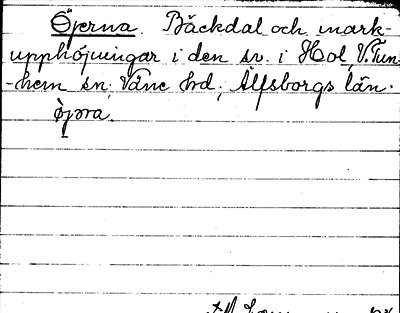 Öjerna. Bäckdal och mark-
upphöjningar i den sv. i Hol, V. Tun-
-hem sn. Väne hrd; Älfsborgs län.
öjɔra.